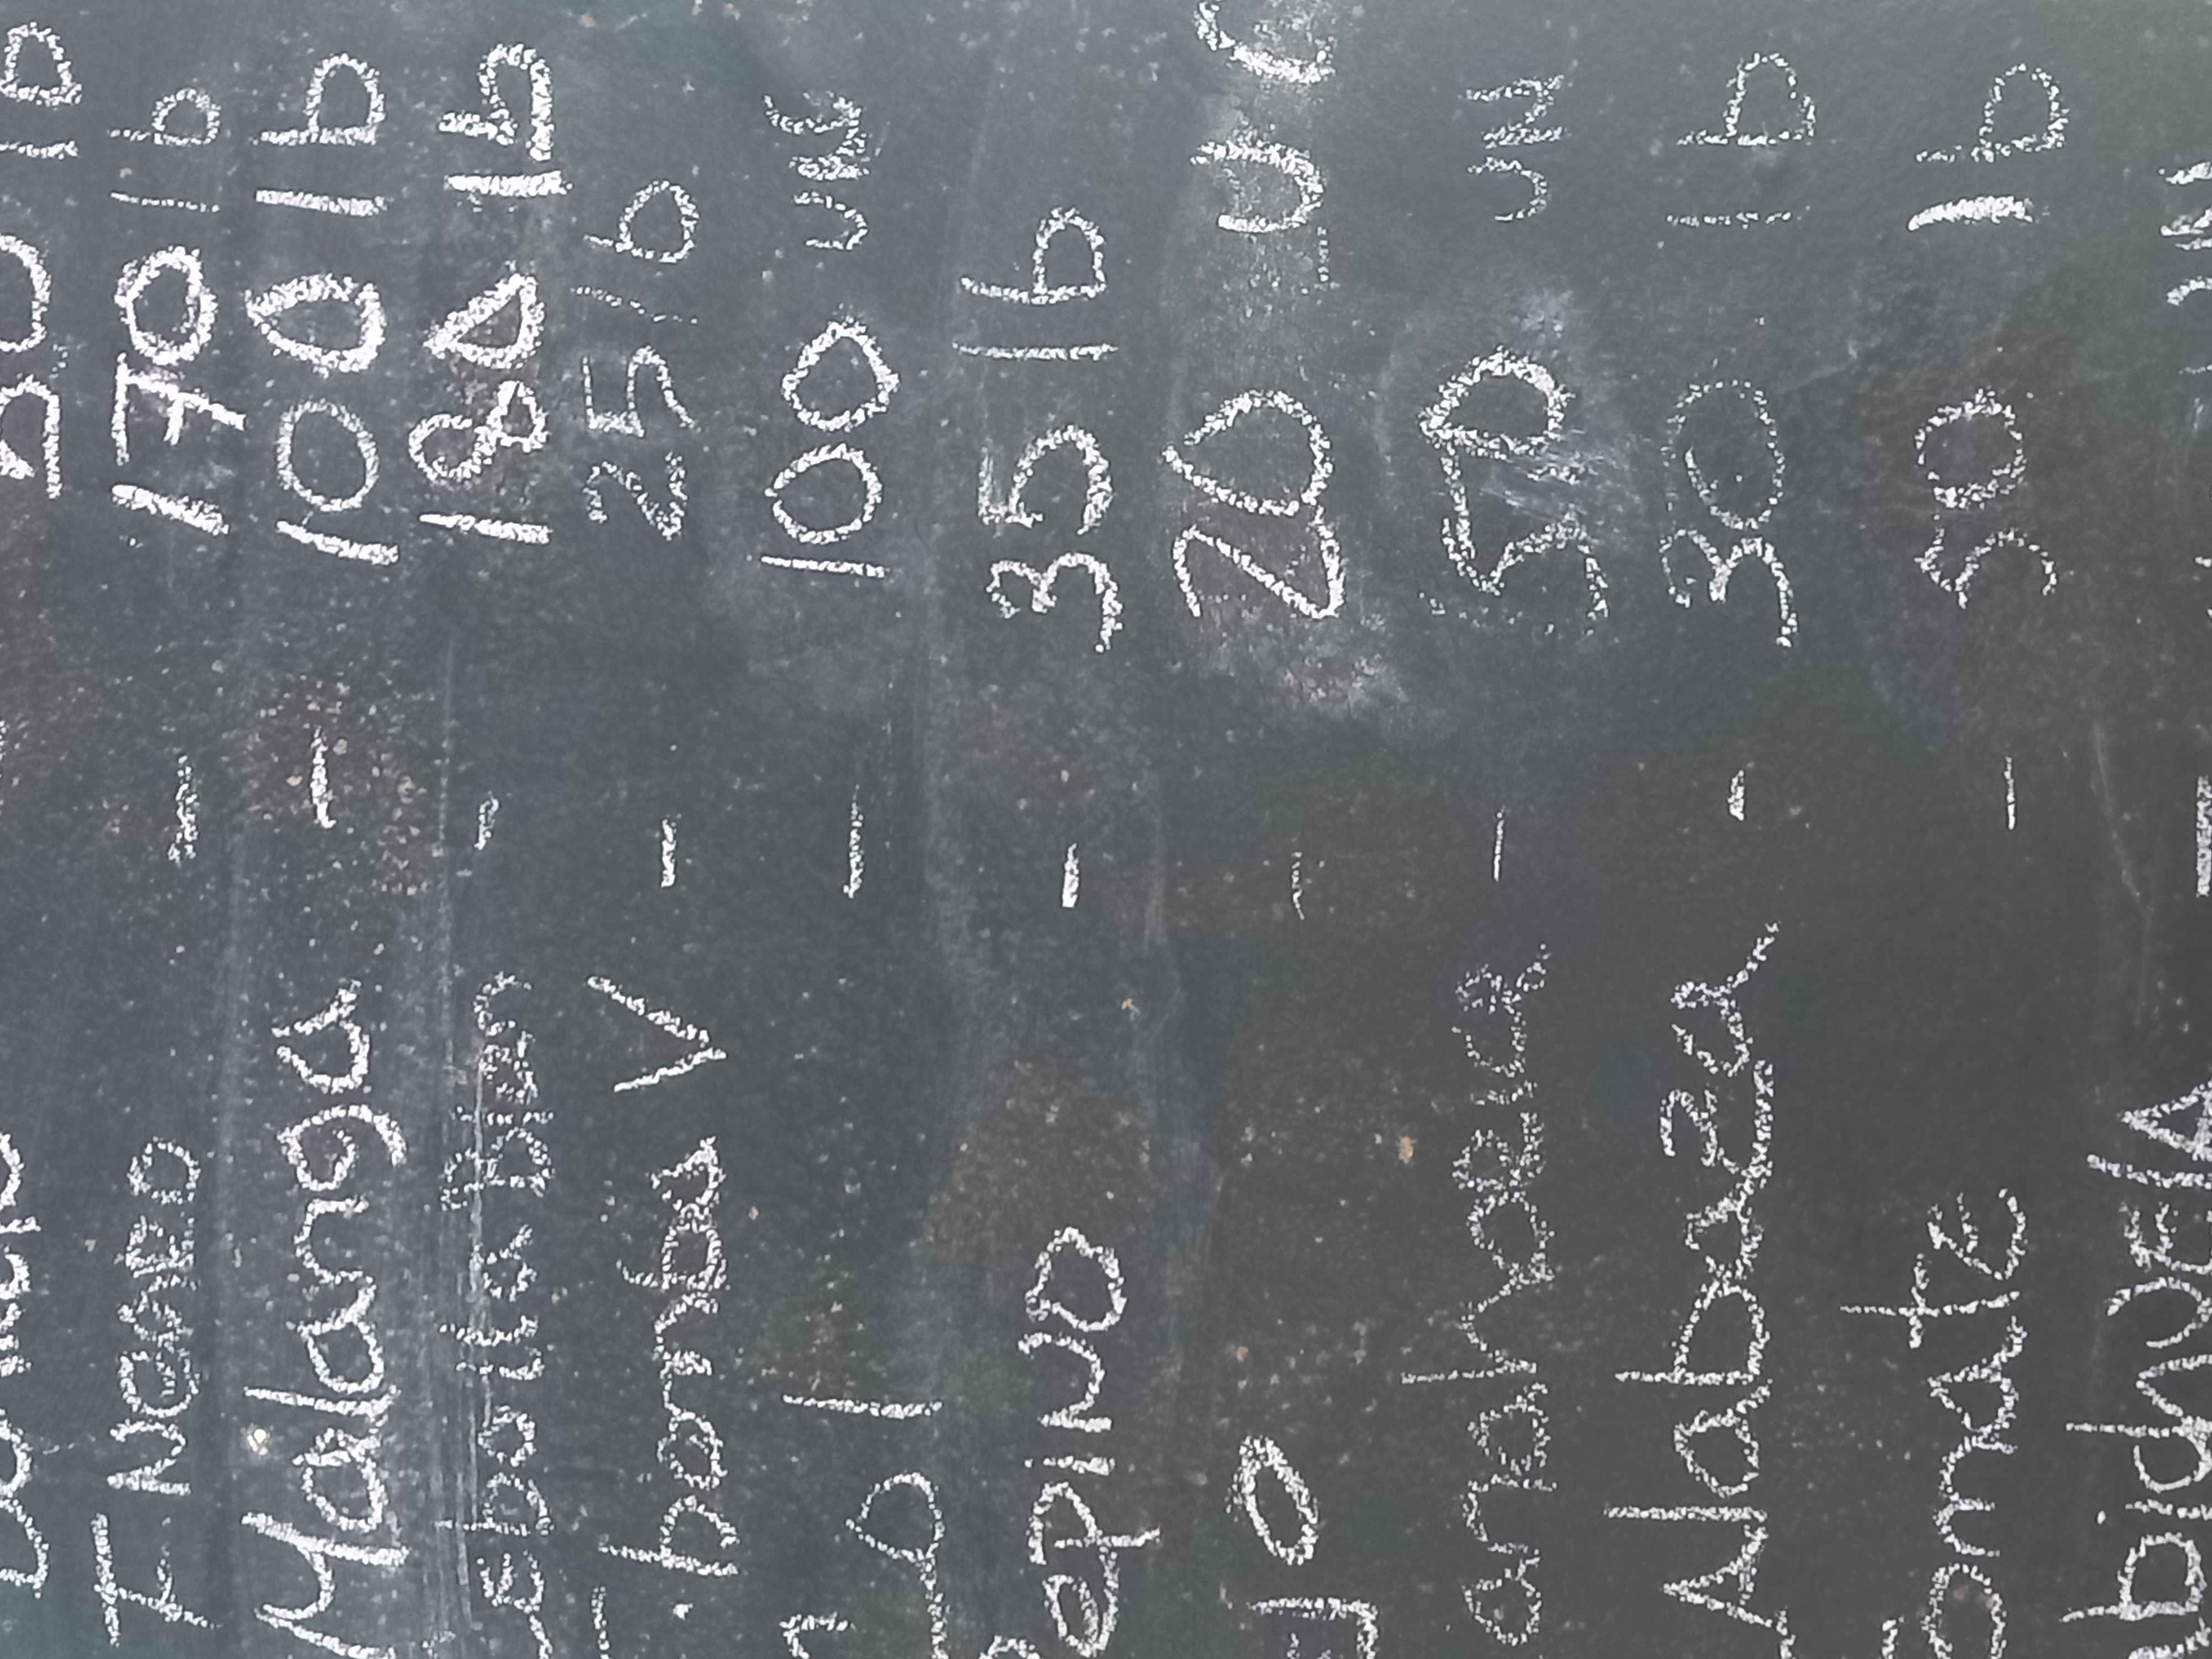 50 lb
F Negro - 170 lb
Malanga - 100 lb
Cebolla Blan - 180 lb
F. bomba V - 25 lb
Col - 100 UN
Pepino - 35 lb
- 20 U
anahoria - 50 UN
Calabaza - 30 lb
Tomate - 50 lb
abichuELA - UN